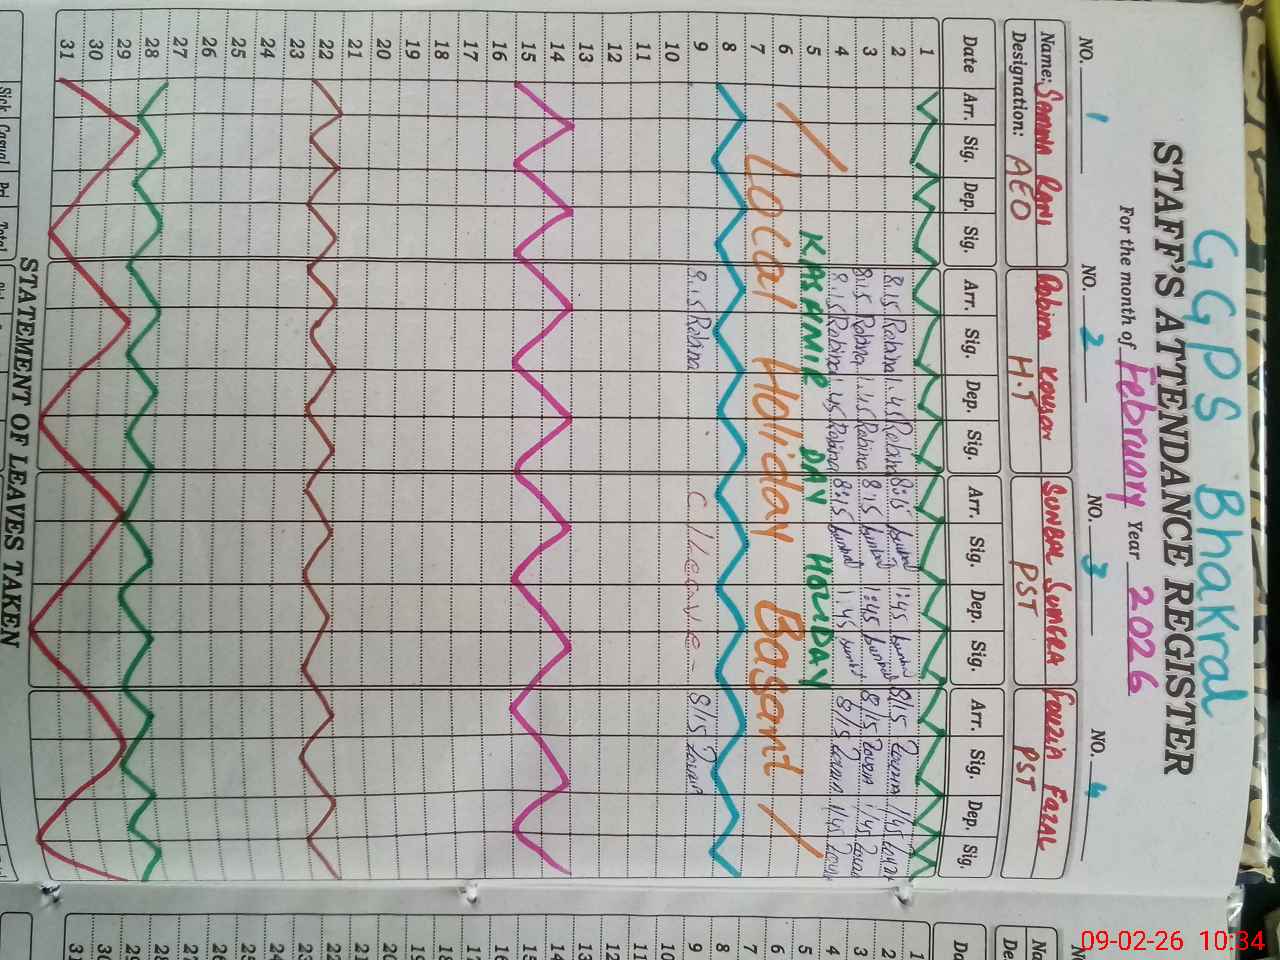 GGPS Bhakral
STAFF'S ATTENDANCE REGISTER
For the month of February Year 2026
NO. 1 NO. 2 NO. 3 NO. 4
Name: Samina Rani Robina Kousar Sunbal Sumera Fouzia Fazal
Designation: AEO H.T PST PST
Date Arr. Sig. Dep. Sig. Arr. Sig. Dep. Sig. Arr. Sig. Dep. Sig. Arr. Sig. Dep. Sig.
1
2 8:15 Robina 1:45 Robina 8:15 1:45 8:15 1:45
3 8:15 Robina 1:45 Robina 8:15 1:45 8:15 1:45
4 8:15 Robina 1:45 Robina 8:15 1:45 8:15 1:45
5 KASHMIR DAY HOLIDAY
6 Local Holiday Basant
7
8
9 8:15 Robina C/Leave - 8:15
10
11
12
13
14
15
16
17
18
19
20
21
22
23
24
25
26
27
28
29
30
31
STATEMENT OF LEAVES TAKEN
Sick Casual Pri Total
09-02-26 10:34